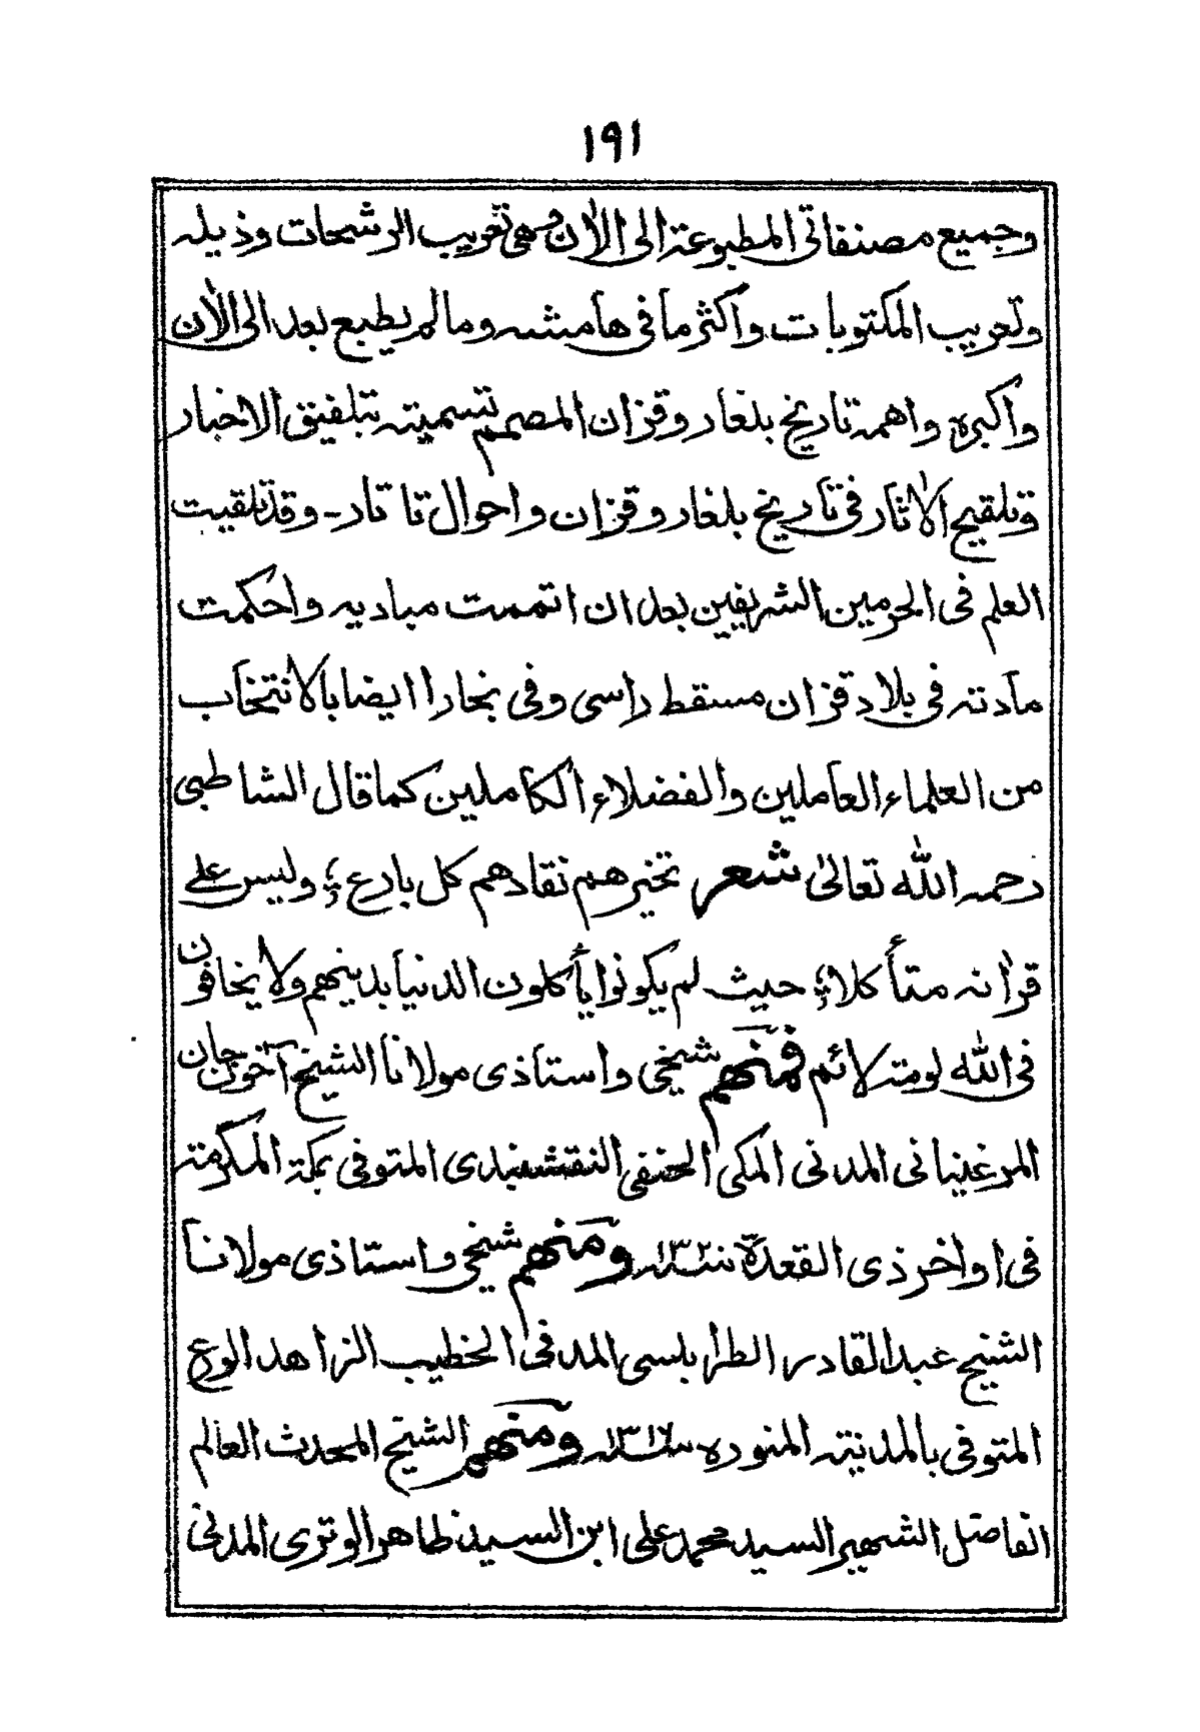 ١٩١
وجميع مصنفاتى المطبوعة الى الاٰن وهى تعريب الرشحات وذيله
وتعريب المكتوبات واكثر ما فى هامشه وما لم يطبع بعد الى الاٰن
واكبره واهمه تاريخ بلغار وقزان المصمم تسميته بتلفيق الاخبار
وتلقيح الاٰثار فى تاريخ بلغار وقزان واحوال تاتار - وقد تلقيت
العلم فى الحرمين الشريفين بعد ان اتممت مباديه واحكمت
مادته فى بلاد قزان مسقط راسى وفى بخارا ايضا بالانتخاب
من العلماء العاملين والفضلاء الكاملين كما قال الشاطبى
رحمه الله تعالىٰ شعر تخيرهم نقادهم كل بارع ؛ وليس على
قراٰنه متأكلا ؛ حيث لم يكونوا يأكلون الدنيا بدينهم ولا يخافون
فى الله لومة لائم فمنهم شيخى واستاذى مولانا الشيخ آخون جان
المرغينانى المدنى المكى الحنفى النقشبندى المتوفى بمكة المكرمة
فى اواخر ذى القعدة سنة ١٣٢٠ ومنهم شيخى واستاذى مولانا
الشيخ عبد القادر الطرابلسى المدنى الخطيب الزاهد الورع
المتوفى بالمدينة المنوره سنة ومنهم الشيخ المحدث العالم
الفاضل الشهير السيد محمد على ابن السيد ظاهر الوترى المدنى